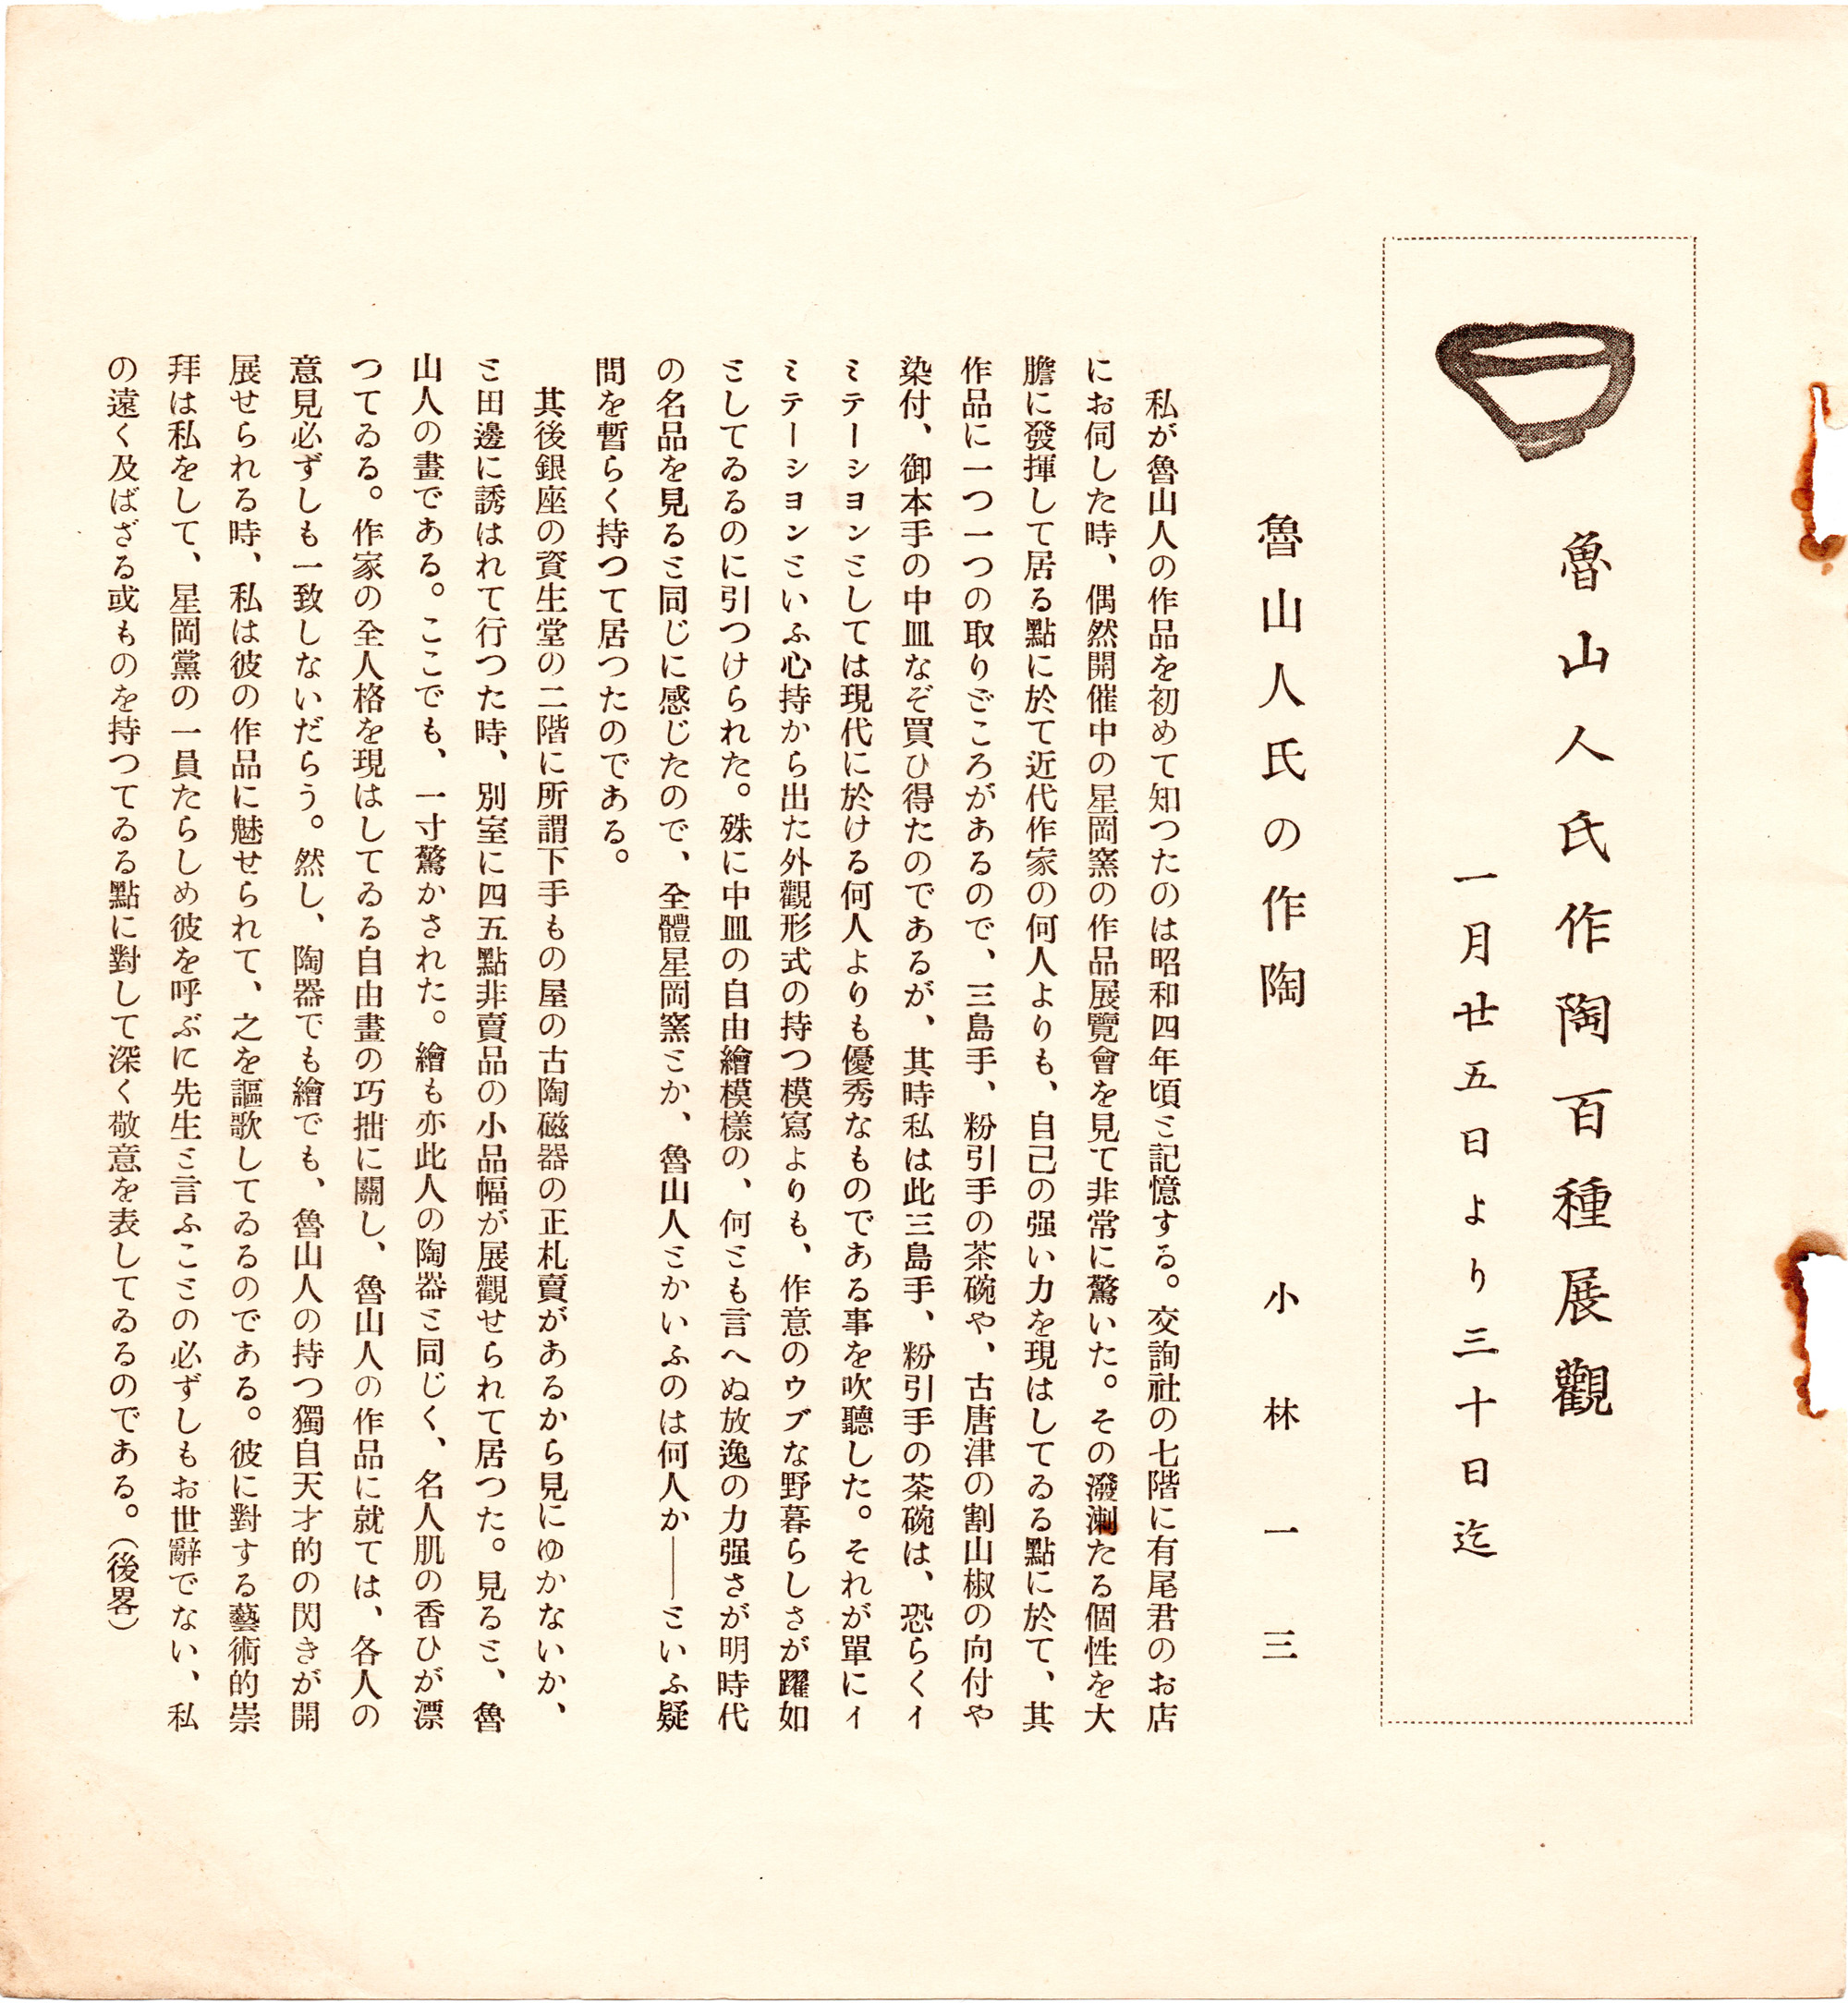 魯山人氏作陶百種展觀
一月廿五日より三十日迄
魯山人氏の作陶
小林一三
私が魯山人の作品を初めて知つたのは昭和四年頃ミ記憶する。交詢社の七階に有尾君のお店
にお伺した時、偶然開催中の星岡窯の作品展覽會を見て非常に驚いた。その潑溂たる個性を大
膽に發揮して居る點に於て近代作家の何人よりも、自己の强い力を現はしてゐる點に於て、其
作品に一つ一つの取りどころがあるので、三島手、粉引手の茶碗や、古唐津の割山椒の向付や
染付、御本手の中皿なぞ買ひ得たのであるが、其時私は此三島手、粉引手の茶碗は、恐らくイ
ミテーシヨンミしては現代に於ける何人よりも優秀なものである事を吹聽した。それが單にイ
ミテーシヨンミいふ心持から出た外觀形式の持つ模寫よりも、作意のウブな野暮らしさが躍如
ミしてゐるのに引つけられた。殊に中皿の自由繪模樣の、何ミも言へぬ放逸の力强さが明時代
の名品を見るミ同じに感じたので、全體星岡窯ミか、魯山人ミかいふのは何人か――ミいふ疑
問を暫らく持つて居つたのである。
其後銀座の資生堂の二階に所謂下手もの屋の古陶磁器の正札賣があるから見にゆかないか、
ミ田邊に誘はれて行つた時、別室に四五點非賣品の小品幅が展觀せられて居つた。見るミ、魯
山人の畫である。ここでも、一寸驚かされた。繪も亦此人の陶器ミ同じく、名人肌の香ひが漂
つてゐる。作家の全人格を現はしてゐる自由畫の巧拙に關し、魯山人の作品に就ては、各人の
意見必ずしも一致しないだらう。然し、陶器でも繪でも、魯山人の持つ獨自天才的の閃きが開
展せられる時、私は彼の作品に魅せられて、之を謳歌してゐるのである。彼に對する藝術的崇
拜は私をして、星岡黨の一員たらしめ彼を呼ぶに先生ミ言ふこミの必ずしもお世辭でない、私
の遠く及ばざる或ものを持つてゐる點に對して深く敬意を表してゐるのである。（後畧）